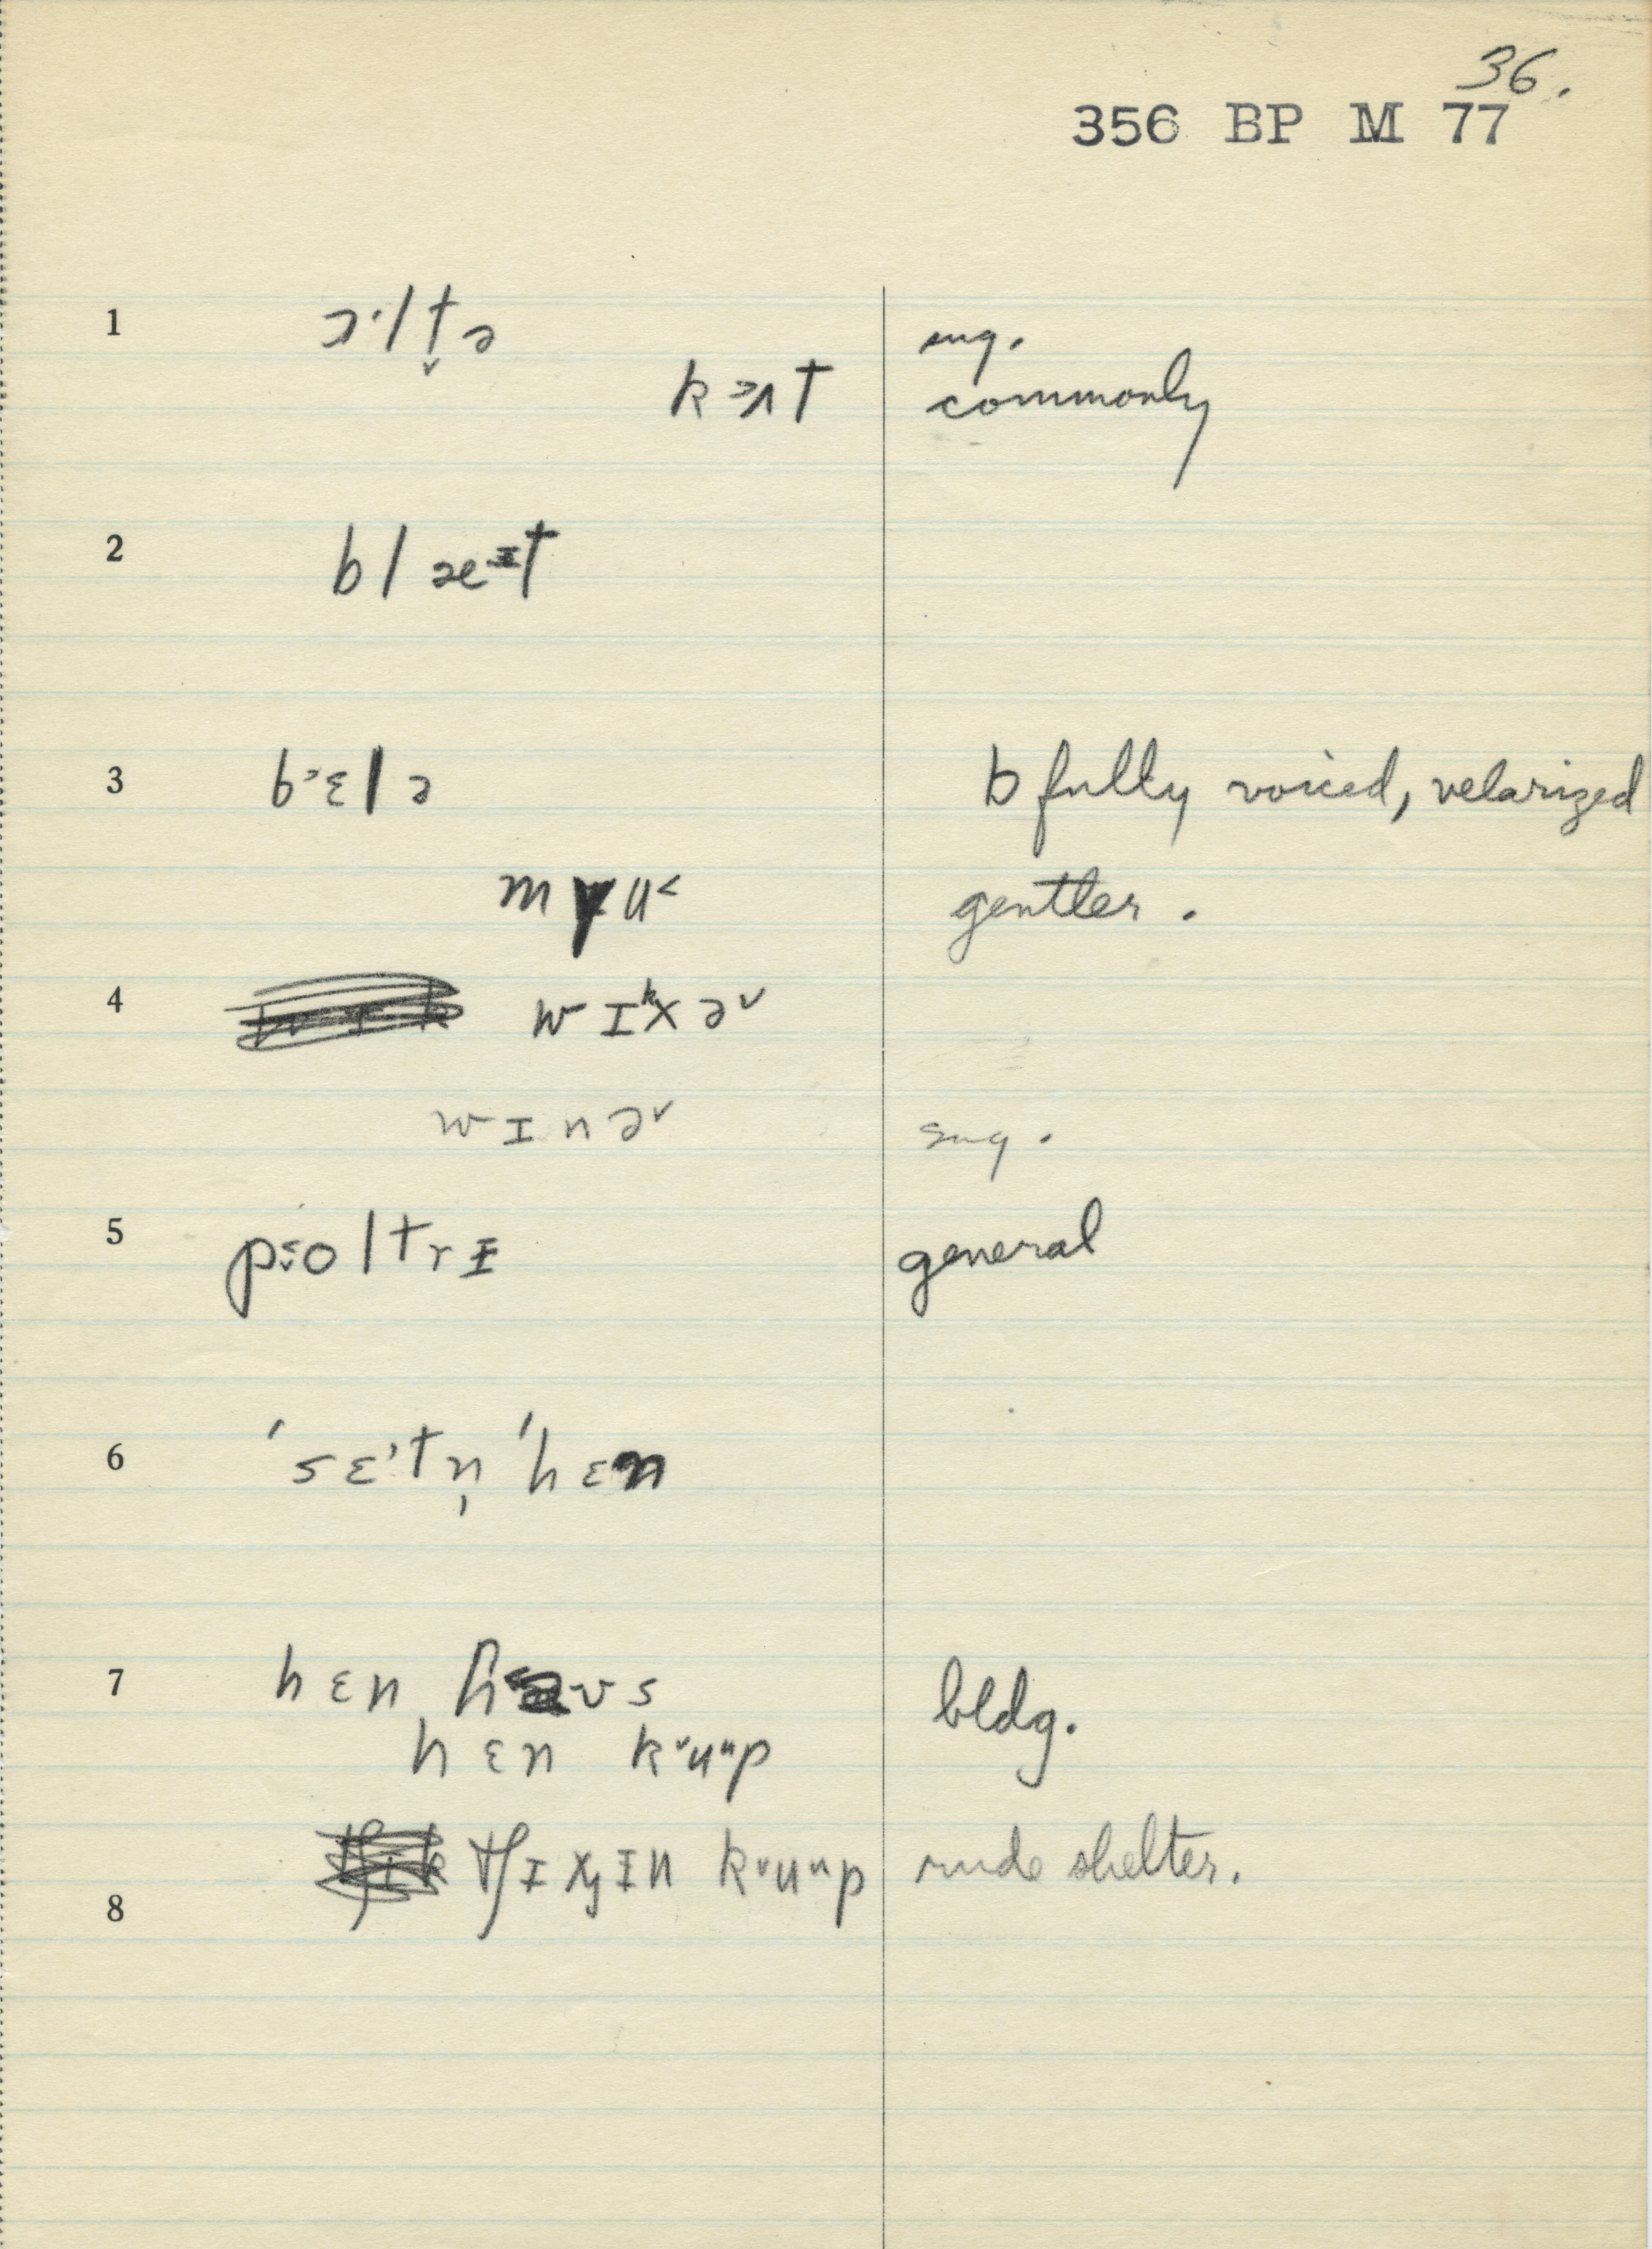 36.
356 BP M 77
1 ɔ·lt̬ə sug.
kɜʌt commonly
2 blæɪt
3 b˃ɛlə b fully voiced, velarized
mɨu˂ gentler.
4 wɪᵏxə˅
wɪnə˅ sug.
5 p˂oltrɪ general
6 ˈsɛ˃tn̩ ˈhɛn
7 hɛn haʊs bldg.
hɛn k˅uᵘp
8 tʃɪxɪn k˅uᵘp rude shelter.